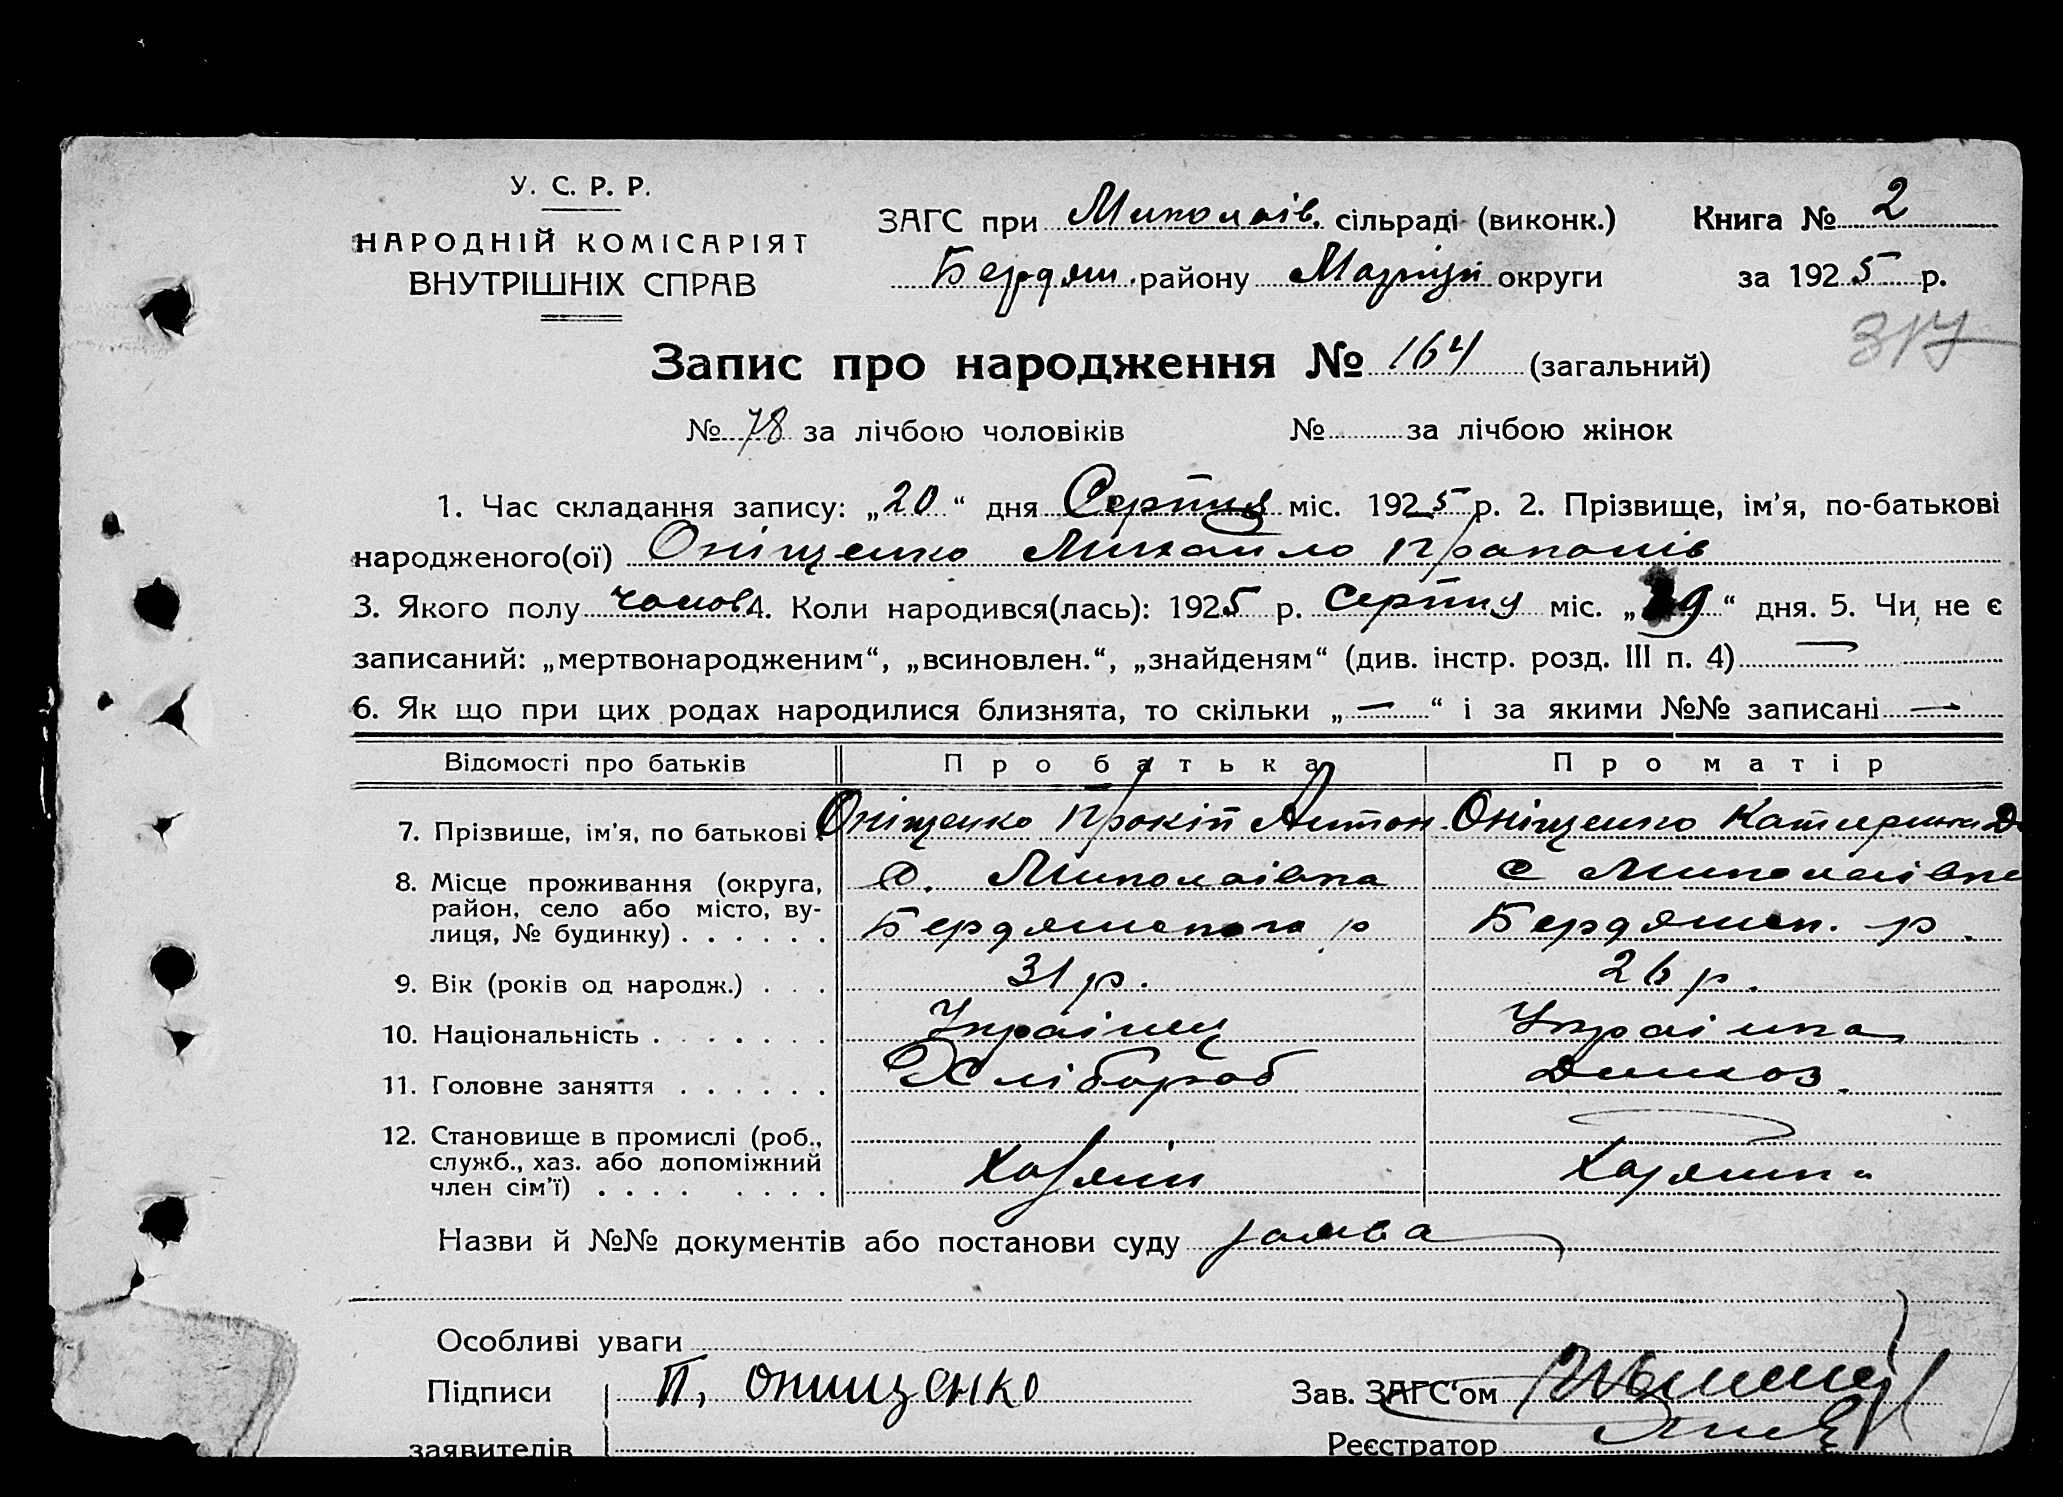 У. С. Р. Р.
НАРОДНІЙ КОМІСАРІЯТ
ВНУТРІШНІХ СПРАВ
ЗАГС при Миколаїв. сільраді (виконк.)
Бердян. району Маріуп округи
Книга № 2
за 1925 р.
317
Запис про народження № 164 (загальний)
№ 78 за лічбою чоловіків № за лічбою жінок
1. Час складання запису: „20“ дня Серпня міс. 1925 р. 2. Прізвище, ім'я, по-батькові
народженого(ої) Оніщенко Михайло Прокопів
3. Якого полу чолов. 4. Коли народився(лась): 1925 р. серпня міс. „19“ дня. 5. Чи не є
записаний: „мертвонародженим“, „всиновлен.“, „знайденям“ (див. інстр. розд. III п. 4) —
6. Як що при цих родах народилися близнята, то скільки „—“ і за якими №№ записані —
Відомості про батьків Про батька Про матір
7. Прізвище, ім'я, по батькові Оніщенко Прокіп Антон. Оніщенко Катерина
8. Місце проживання (округа, с. Миколаївка с Миколаївка
район, село або місто, ву-
лиця, № будинку) . . . . . . Бердянського р Бердянск. р.
9. Вік (років од народж.) . . . 31 р. 26 р.
10. Національність . . . . . . . Українец Українка
11. Головне заняття . . . . . . Хлібороб Домхоз.
12. Становище в промислі (роб.,
служб., хаз. або допоміжний
член сім'ї) . . . . . . . . Хазяїн Хазяйка
Назви й №№ документів або постанови суду заява
Особливі уваги
Підписи П. Онищенко Зав. ЗАГС'ом
заявителів Реєстратор